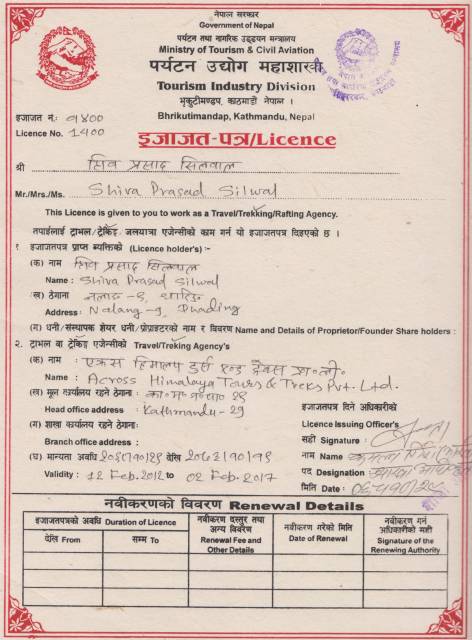 नेपाल सरकार
Government of Nepal
पर्यटन तथा नागरिक उड्डयन मन्त्रालय
Ministry of Tourism & Civil Aviation
पर्यटन उद्योग महाशाखा
Tourism Industry Division
भृकुटीमण्डप, काठमाडौं नेपाल ।
Bhrikutimandap, Kathmandu, Nepal
इजाजत नं.: १४००
Licence No. 1400
इजाजत-पत्र/Licence
श्री शिव प्रसाद सिलवाल
Mr./Mrs./Ms. Shiva Prasad Silwal
This Licence is given to you to work as a Travel/Trekking/Rafting Agency.
तपाईंलाई ट्राभल/ट्रेकिङ्ग/जलयात्रा एजेन्सीको काम गर्न यो इजाजतपत्र दिइएको छ ।
१. इजाजतपत्र प्राप्त ब्यक्तिको (Licence holder's) :-
(क) नाम शिव प्रसाद सिलवाल
Name : Shiva Prasad Silwal
(ख) ठेगाना नलाङ -९, धादिङ
Address: Nalang-9, Dhading
(ग) धनी/संस्थापक शेयर धनी/प्रोप्राइटरको नाम र विवरण Name and Details of Proprietor/Founder Share holders :
२. ट्राभल वा ट्रेकिङ्ग एजेन्सीको Travel/Trekking Agency's
(क) नाम : एक्रस हिमालय टुर्स एण्ड ट्रेक्स प्रा.ली.
Name : Across Himalaya Tours & Treks Pvt. Ltd.
(ख) मूल कार्यालय रहने ठेगाना: का.म.न.पा २९
Head office address : Kathmandu-29
इजाजतपत्र दिने अधिकारीको
Licence Issuing Officer's
(ग) शाखा कार्यालय रहने ठेगाना:
Branch office address :
सही Signature :
नाम Name
(घ) मान्यता अवधि देखि
पद Designation
Validity : 12 Feb. 2012 to 02 Feb. 2017
मिति Date :
नवीकरणको विवरण Renewal Details
इजाजतपत्रको अवधि Duration of Licence
देखि From
सम्म To
नवीकरण दस्तुर तथा अन्य विवरण
Renewal Fee and Other Details
नवीकरण गरेको मिति
Date of Renewal
नवीकरण गर्ने अधिकारीको सही
Signature of the Renewing Authority